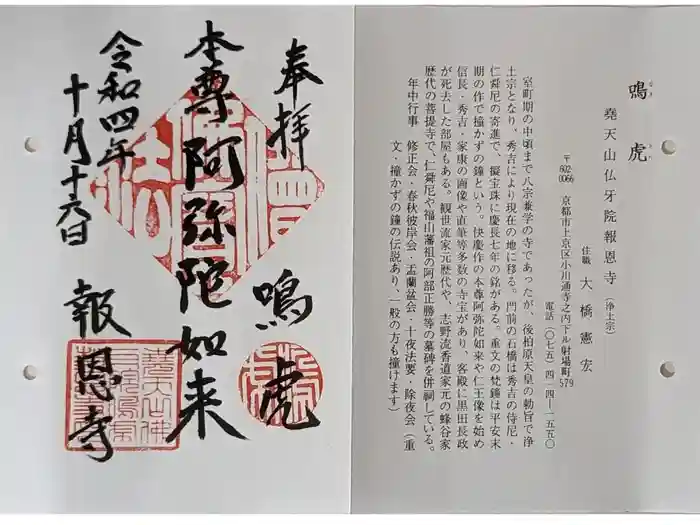 鳴虎
なき とら
堯天山仏牙院報恩寺（浄土宗）
住職 大橋憲宏
〒602-0066 京都市上京区小川通寺之内下ル射場町579
電話（〇七五）四一四―一五五〇
室町期の中頃まで八宗兼学の寺であったが、後柏原天皇の勅旨で浄
土宗となり、秀吉により現在の地に移る。門前の石橋は秀吉の侍尼・
仁舜尼の寄進で、擬宝珠に慶長七年の銘がある。重文の梵鐘は平安末
期の作で撞かずの鐘という。快慶作の本尊阿弥陀如来や仁王像を始め
信長・秀吉・家康の画像や直筆等多数の寺宝があり、客殿に黒田長政
が死去した部屋もある。観世流家元歴代や、志野流香道家元の蜂谷家
歴代の菩提寺で、仁舜尼や福山藩祖の阿部正勝等の墓碑を併祠している。
年中行事 修正会・春秋彼岸会・盂蘭盆会・十夜法要・除夜会（重
文・撞かずの鐘の伝説あり、一般の方も撞けます）
奉拝
鳴虎
本尊阿弥陀如来
令和四年
十月十六日
報恩寺